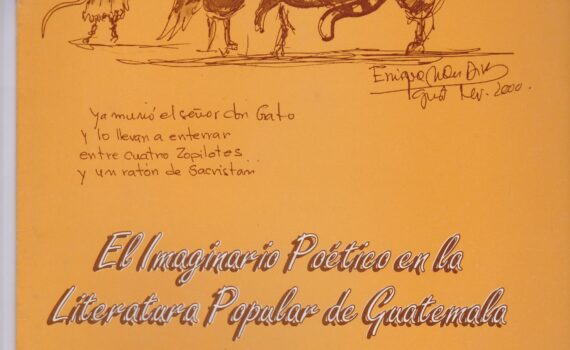 Enrique
Guat Nov. 2000.
ya murió el señor don Gato
y lo llevan a enterrar
entre cuatro Zopilotes
y un ratón de Sacristan
El Imaginario Poético en la
Literatura Popular de Guatemala